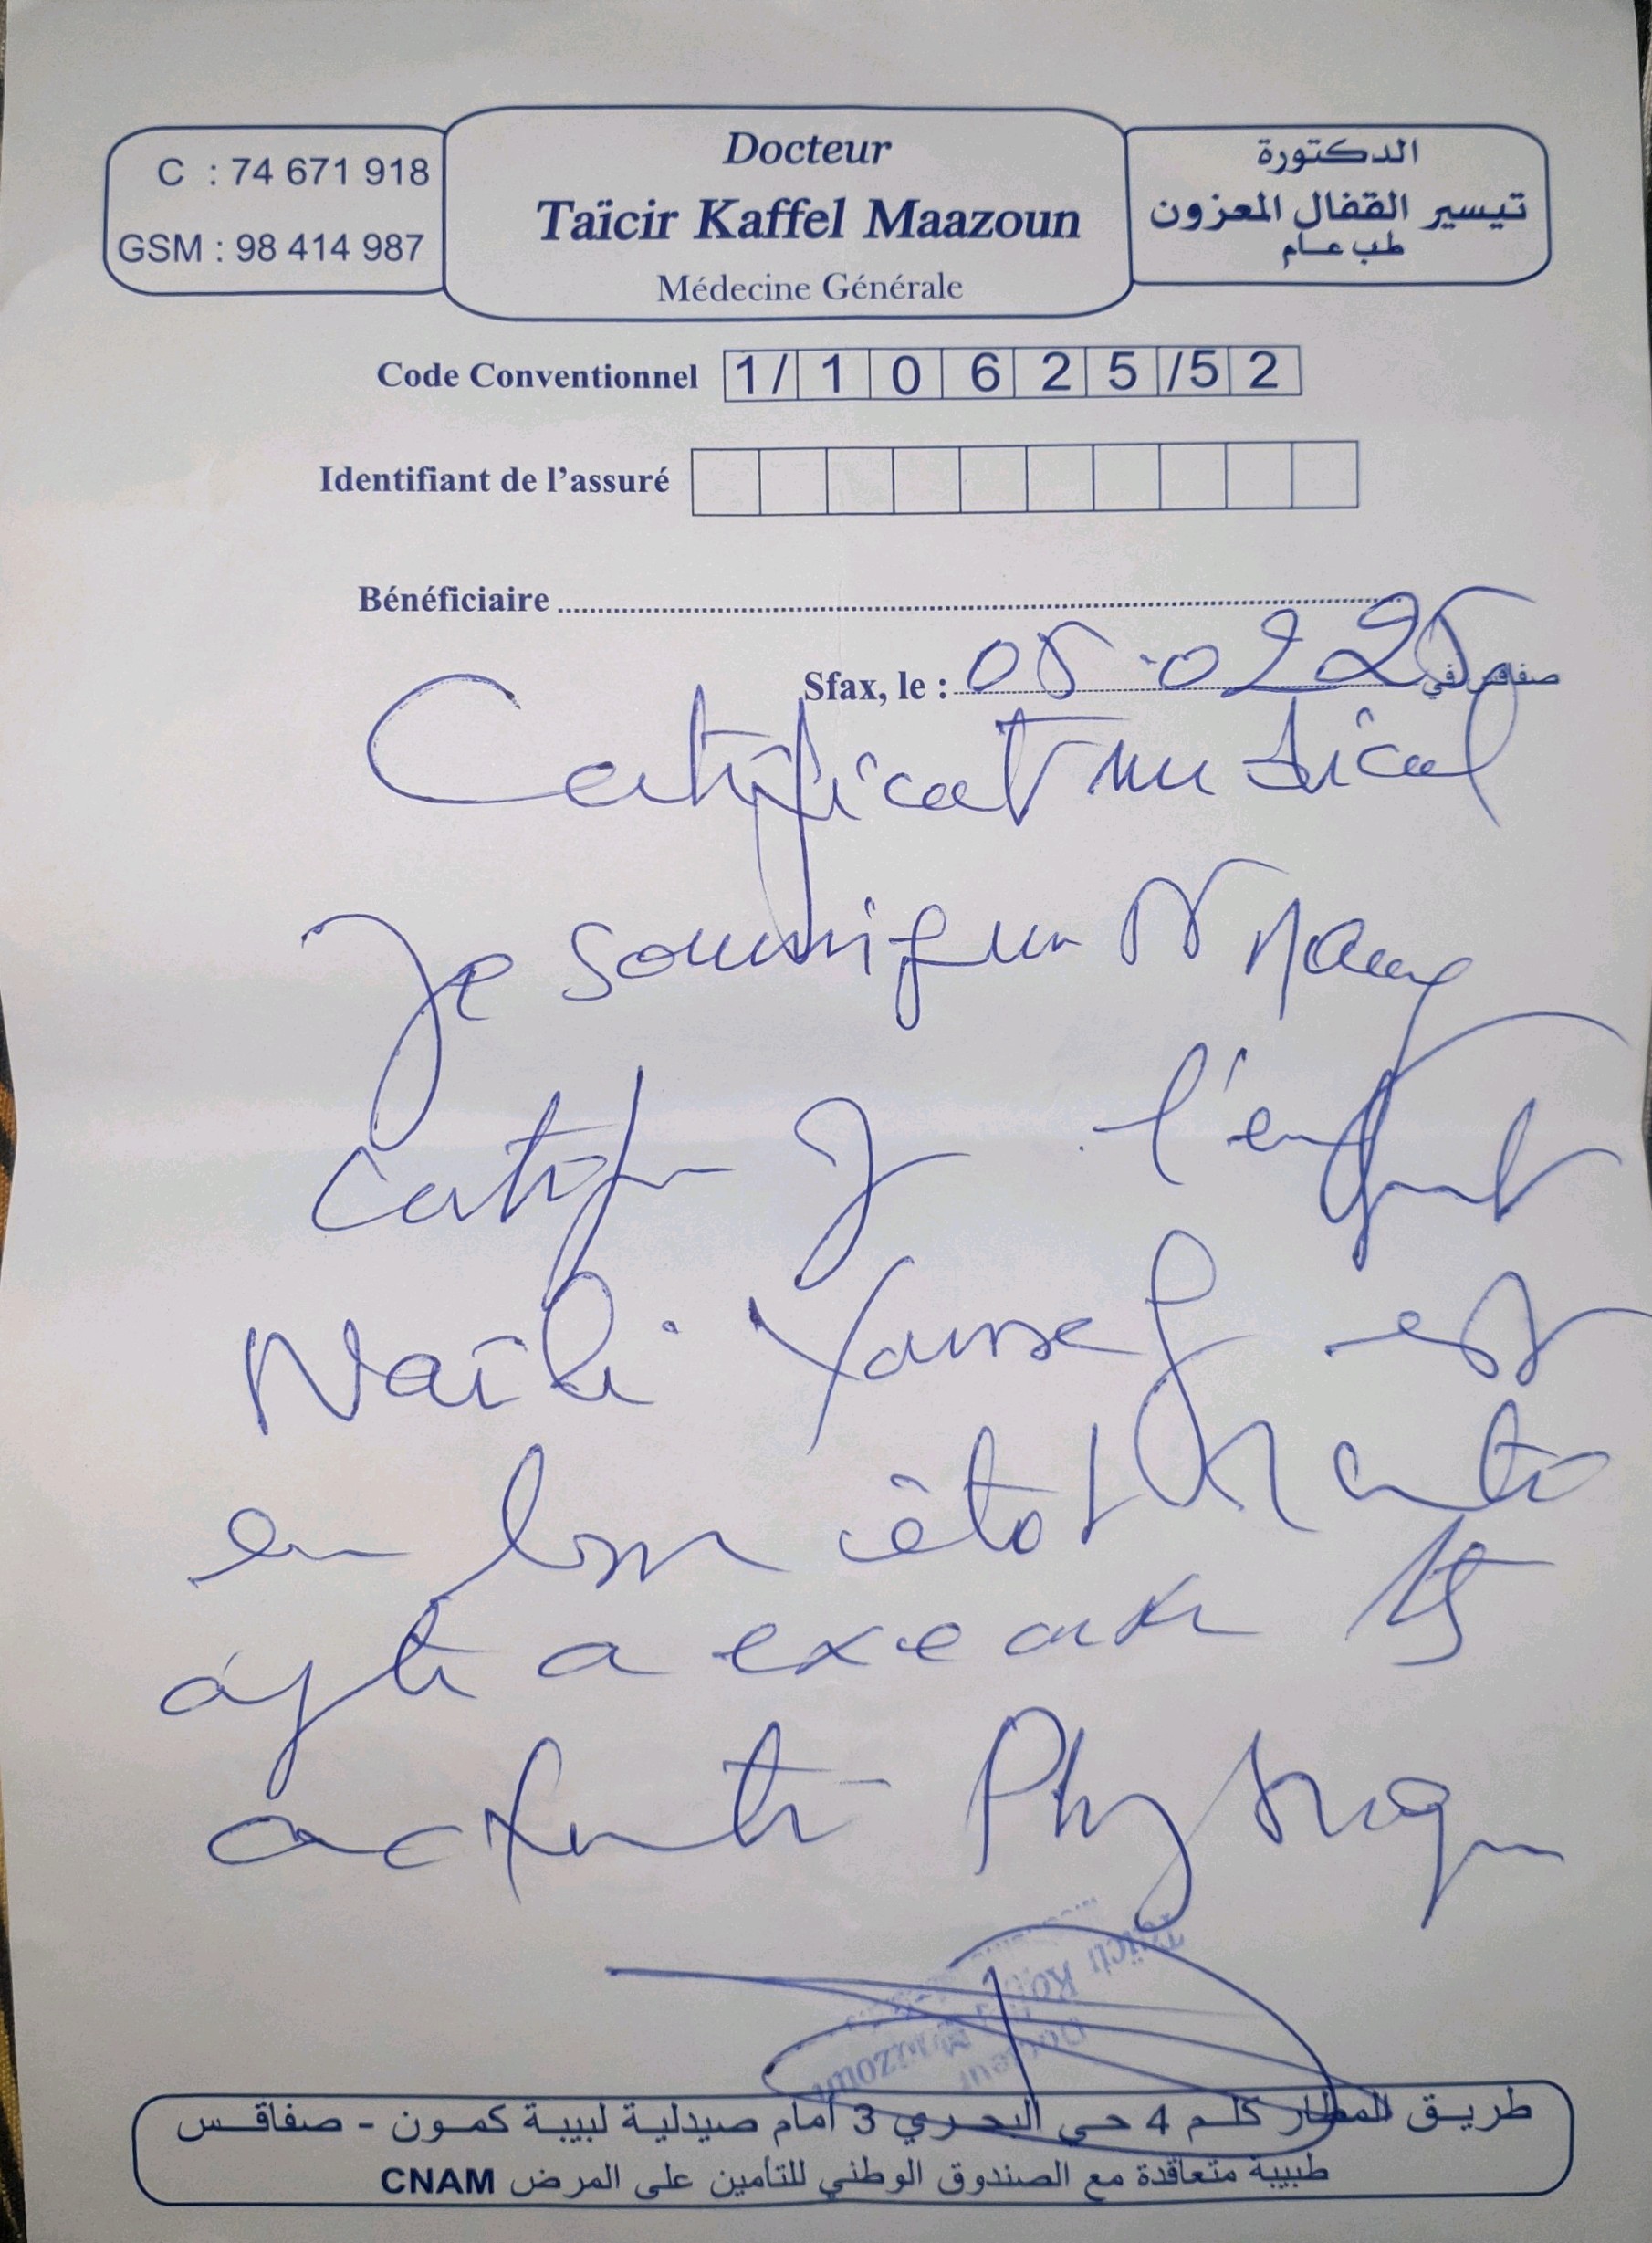 C : 74 671 918
GSM : 98 414 987
Docteur
Taïcir Kaffel Maazoun
Médecine Générale
الدكتورة
تيسير القفال المعزون
طب عام
Code Conventionnel 1/ 1 0 6 2 5 /5 2
Identifiant de l'assuré
Bénéficiaire
Sfax, le : 05.02 25 صفاقس في
Certificat medical
Je soussigne Dr
Certifie l'enfant
Naïli Youssef est
en bon état
apte a executer
activité Physique
Docteur
Taïcir Kaffel
Maazoun
طريق المطار كلم 4 حي البحري 3 أمام صيدلية لبيبة كمون - صفاقس
طبيبة متعاقدة مع الصندوق الوطني للتأمين على المرض CNAM